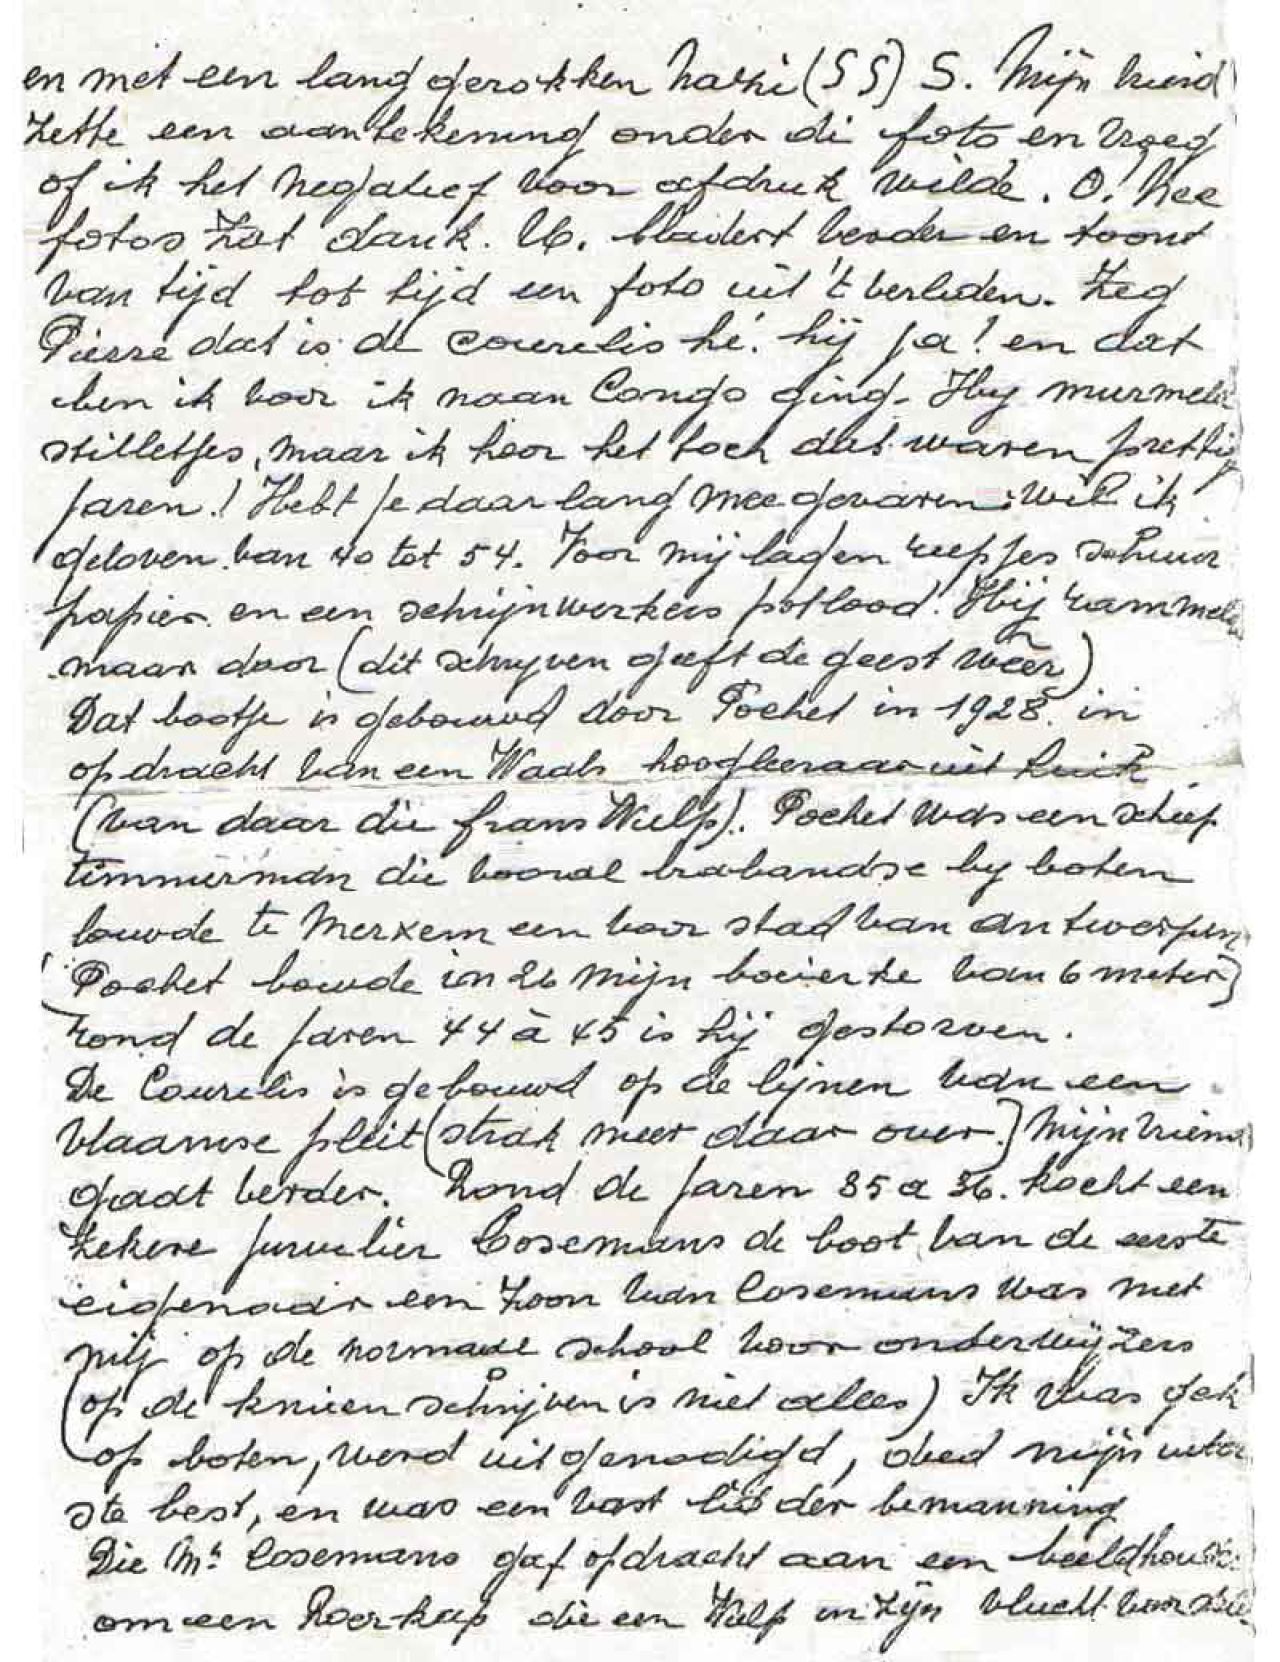 en met een lang gerokken Natzi (SS) S. Mijn vriend
Zette een aantekening onder di foto en vroeg
of ik het negatief voor afdruk wilde. O! Nee
fotos Zat dank. M. bladert verder en toont
van tijd tot tijd een foto uit 't verleden. Zeg
Pierre dat is di Courelis hé! hij ja! en dat
ben ik voor ik naar Congo ging. Hij murmeld
stilletjes, maar ik hoor het toch dat waren prettig
jaren! Hebt je daar lang mee gevaren: wil ik
geloven. van 40 tot 54. Voor mij lagen reepjes schuur
papier en een schrijnwerkers potlood! Hij rammeld
maar door (dit schrijven geeft de geest weer)
Dat bootje is gebouwd door Pochet in 1928. in
opdracht van een Waals hoogleeraar uit Luik
(van daar die frans Wulp). Pochet was een scheep
timmerman die vooral brabandse by boten
bouwde te Merxem een voor stad van Antwerpen
(Pochet bouwde in 26 mijn boeierke van 6 meter)
rond de jaren 44 à 45 is hij gestorven.
De Courelis is gebouwd op de lijnen van een
Vlaamse pleit (strak meer daar over.) Mijn vriend
gaat verder. Rond de jaren 35 a 36. kocht een
Zekere juwelier Cosemans de boot van de eerste
eigenaar een Zoon van Cosemans was met
mij op de normale school voor onderwijzers
(op de knieen schrijven is niet alles) Ik was gek
op boten, werd uitgenodigd, deed mijn uiter
ste best, en was een vast lid der bemanning
Die Mr Cosemans gaf opdracht aan een beeldhouwer
om een Roerkop die een Wulp in zijn vlucht voor